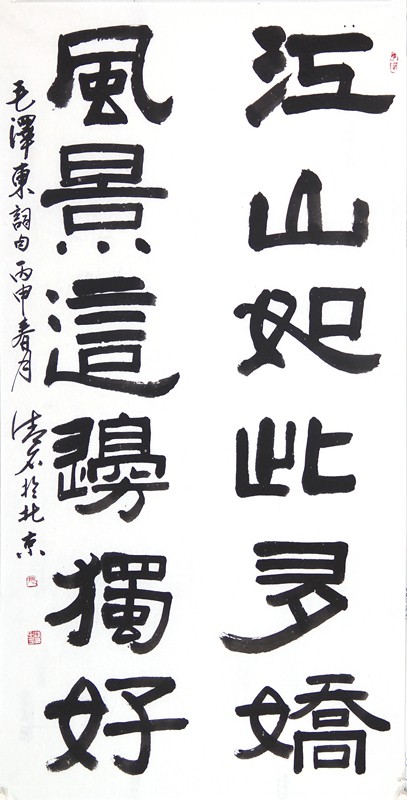 江山如此多嬌
風景這邊獨好
毛澤東詞句 丙申春月 清石於北京